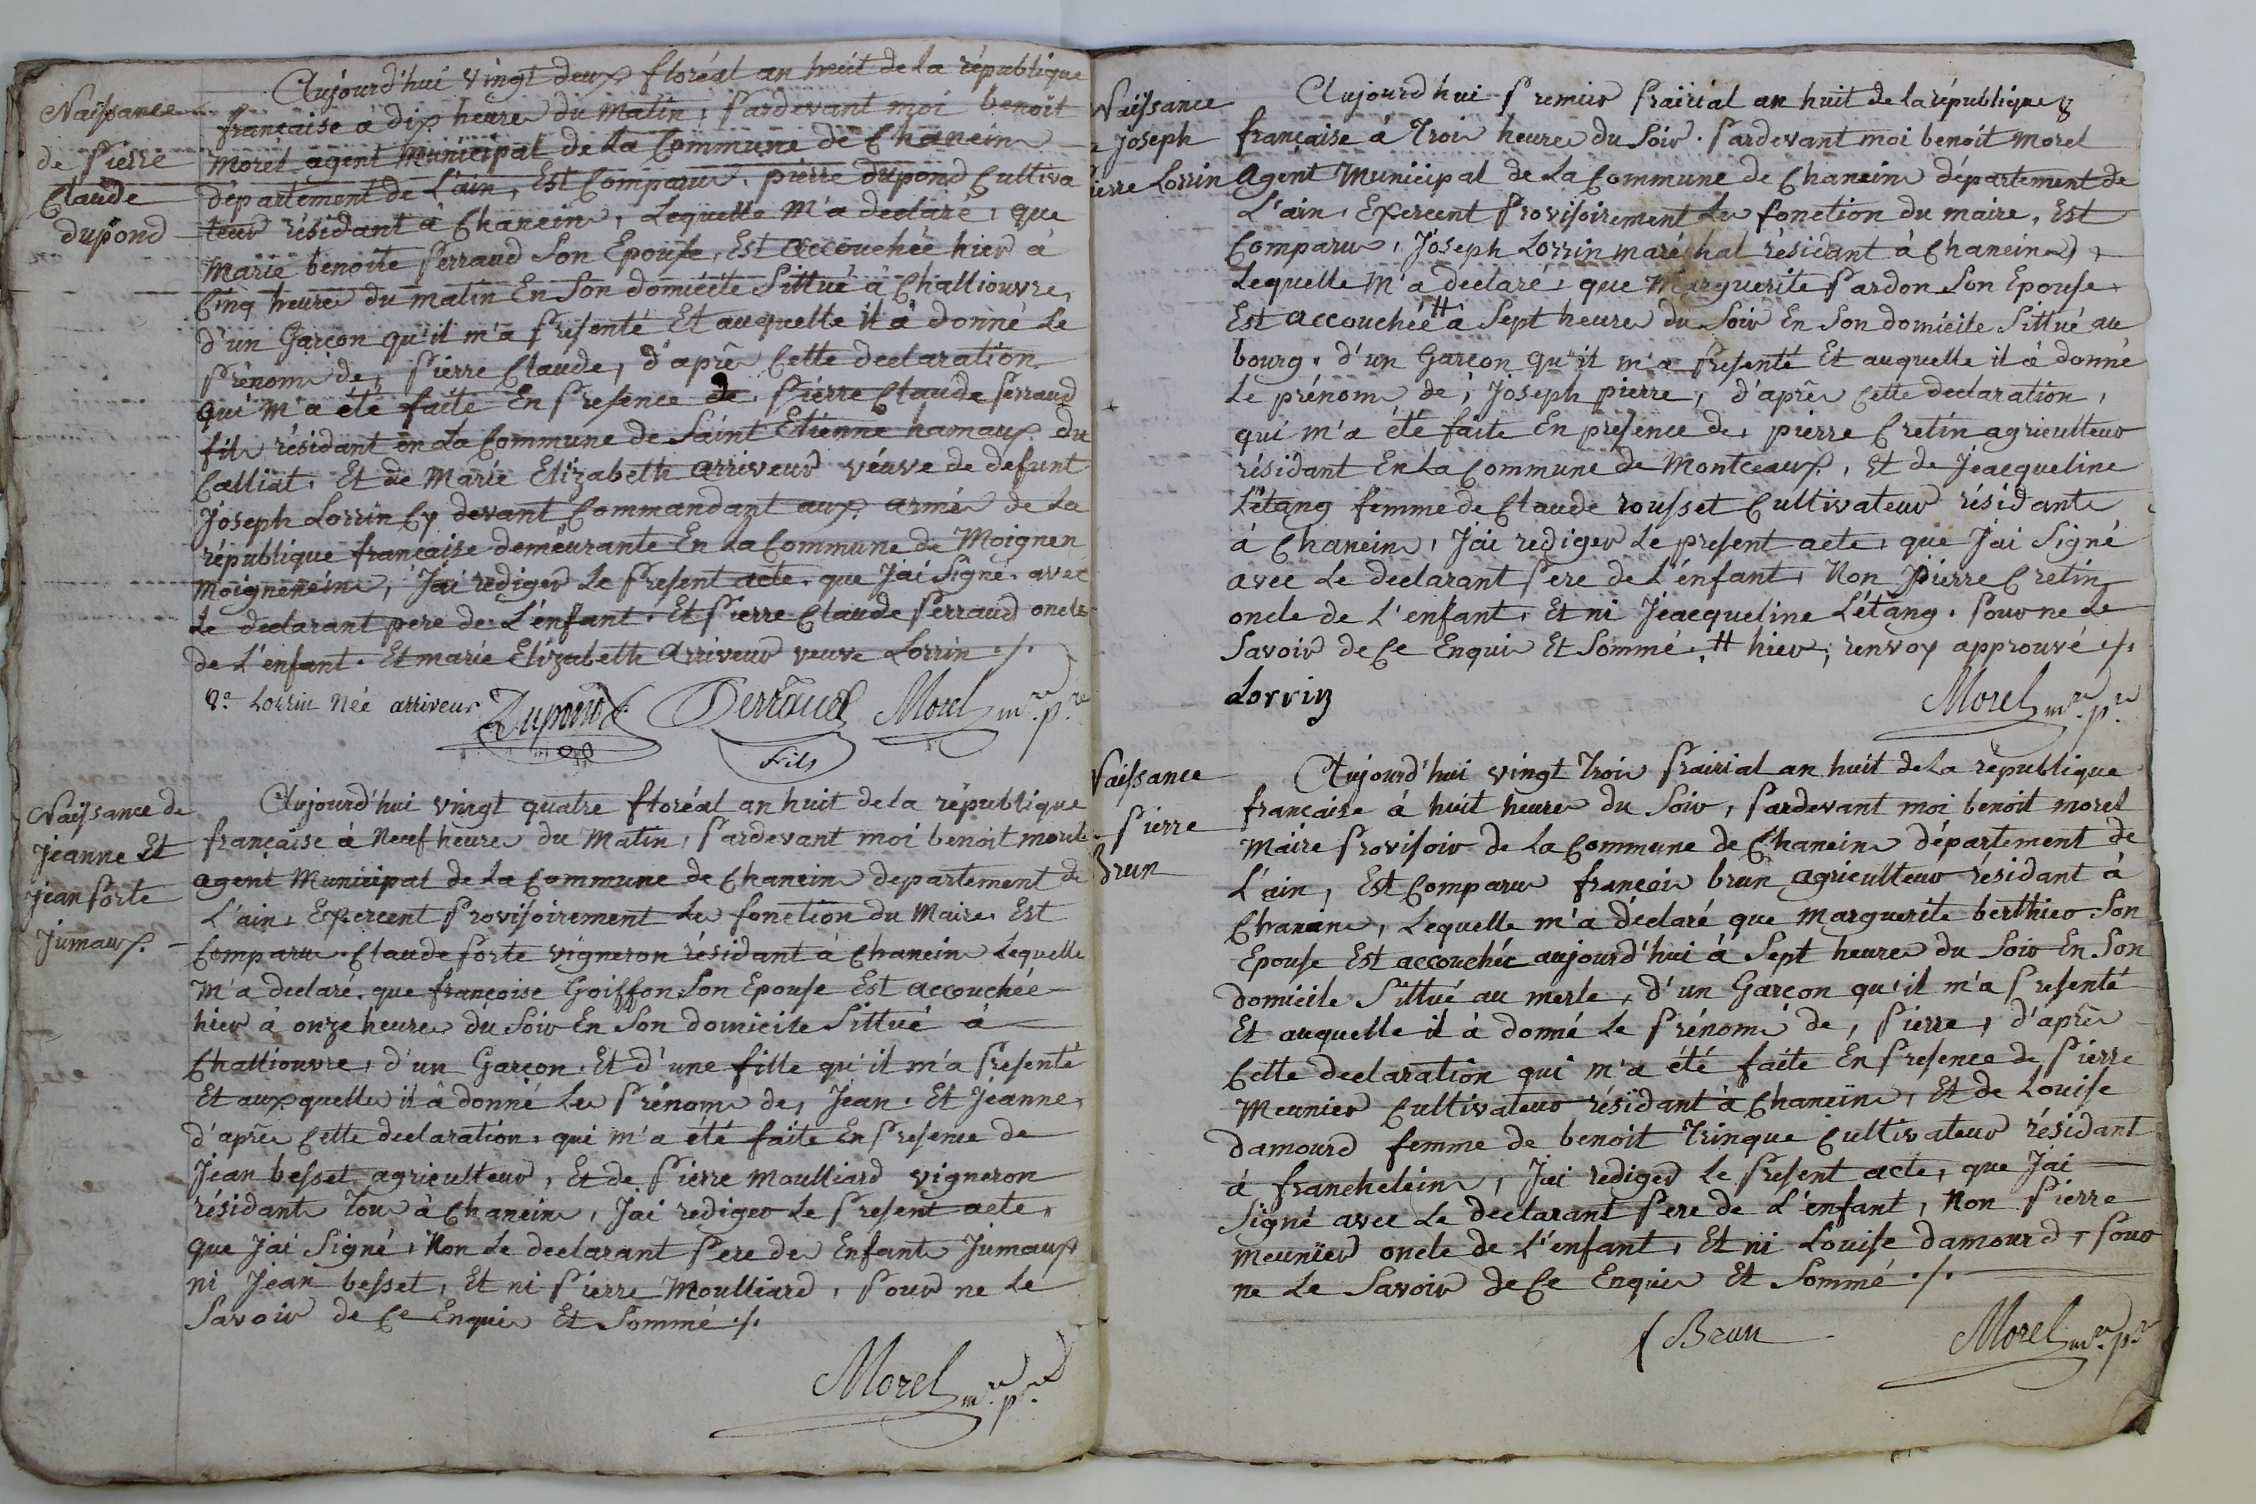 Naissance
de Pierre
Claude
dupond
Aujourd'hui vingt deux floréal an huit de la république
française à dix heures du matin, pardevant moi benoit
morel agent municipal de la Commune de Chaneins
département de L'ain, Est Comparus, pierre dupond Cultiva
teur résidant à Chaneins, Lequelle m'a declaré, que
Marie benoite Perraud Son Epouse, Est accouchée hier à
Cinq heures du matin En Son domicile Sittué à Challiouvre,
d'un Garçon qu'il m'a Presenté Et auquelle il à donné Le
Prénoms de, Pierre Claude, d'après Cette declaration
qui m'a été faite En Presence de Pierre Claude Perraud
fils résidant en La Commune de Saint Etienne hamaux du
Calliat, Et de Marie Elizabeth arriveur véuve de defunt
Joseph Lorrin Cy devant Commandant aux armés de La
république française demeurante En La Commune de Moignen
Moigneneins, J'ai rediger Le Present acte, que J'ai Signé, avec
Le declarant pere de L'énfant, Et Pierre Claude Perraud oncle
de L'enfant. Et marie Elizabeth arriveur veuve Lorrin ./.
Ve Lorrin Née arriveur Dupond Perraud Morel mre pre
Fils
Naissance de
Jeanne Et
Jean Porte
Jumaux.
Aujourd'hui vingt quatre floréal an huit de la république
française à Neuf heures du Matin, Pardevant moi benoit morele
agent Municipal de La Commune de Chaneins departement de
L'ain, Expercent Provisoirement Les fonction du Maire, Est
Comparus Claude Porte vigneron résidant à Chaneins Lequelle
M'a declaré, que françoise Goiffon Son Epouse Est accouchée
hier à onze heures du Soir En Son domicile Sittué à
Challiouvre, d'un Garçon, Et d'une fille qu'il m'a Presenté
Et auxquelles il à donné Les Prénoms de, Jéan, Et Jéanne,
d'après Cette declaration, qui m'a été faite En Presence de
Jéan besset agriculteur, Et de Pierre Moulliard vigneron
résidants Tous à Chaneins, J'ai rediger Le Present acte,
que J'ai Signé, Non Le declarant Pere des Enfants Jumaux
ni Jéan besset, Et ni Pierre Moulliard, Pour ne Le
Savoir de Ce Enquis Et Sommé ./.
Morel mre pre
Naissance
Joseph
Pierre Lorrin
Aujourd'hui Premier Prairial an huit de la république
française à Trois heures du Soir. Pardevant moi benoit Morel
agent Municipal de La Commune de Chaneins département de
L'ain, Expercent Provisoirement Les fonction du maire, Est
Comparus, Joseph Lorrin maréchal résidant à Chaneins,
Lequelle M'a declaré, que Marguerite Pardon Son Epouse
Est accouchée # à Sept heures du Soir En Son domicile Sittué au
bourg, d'un Garçon qu'il m'a Presenté Et auquelle il à donné
Le prénoms de, Joseph pierre, d'après Cette declaration,
qui m'a été faite En presence de, pierre Cretin agriculteur
résidant En La Commune de Montceaux, Et de Jéacqueline
Létang femme de Claude rousset Cultivateur résidante
à Chaneins, J'ai rediger Le present acte, que J'ai Signé
avec Le declarant Pere de L'énfant, Non Pierre Cretin
oncle de L'enfant, Et ni Jéacqueline Létang. Pour ne Le
Savoir de Ce Enquis Et Sommé. # hier, renvoy approuvé ./.
Lorrin Morel mre pre
Naissance
Pierre
Brun
Aujourd'hui vingt Trois Prairial an huit de La république
française à huit heures du Soir, Pardevant moi benoit morel
Maire Provisoir de La Commune de Chaneins département de
L'ain, Est Comparus françois brun agriculteur résidant à
Chaneins, Lequelle m'a déclaré que Marguerite berthier Son
Epouse Est accouchée aujourd'hui à Sept heures du Soir En Son
domicile Sittué au merle, d'un Garçon qu'il m'a Presenté
Et auquelle il à donné Le Prénoms de, Pierre, d'après
Cette declaration qui m'a été faite En Presence de Pierre
Meunier Cultivateur résidant à Chaneins, Et de Louise
damourd femme de benoit Trinque Cultivateur résidant
à francheleins, J'ai rediger Le Present acte, que J'ai
Signé avec Le declarant Pere de L'énfant, Non Pierre
meunier oncle de L'enfant, Et ni Louise damourd, Pour
ne Le Savoir de Ce Enquis Et Sommé ./.
f Brun Morel mre pre